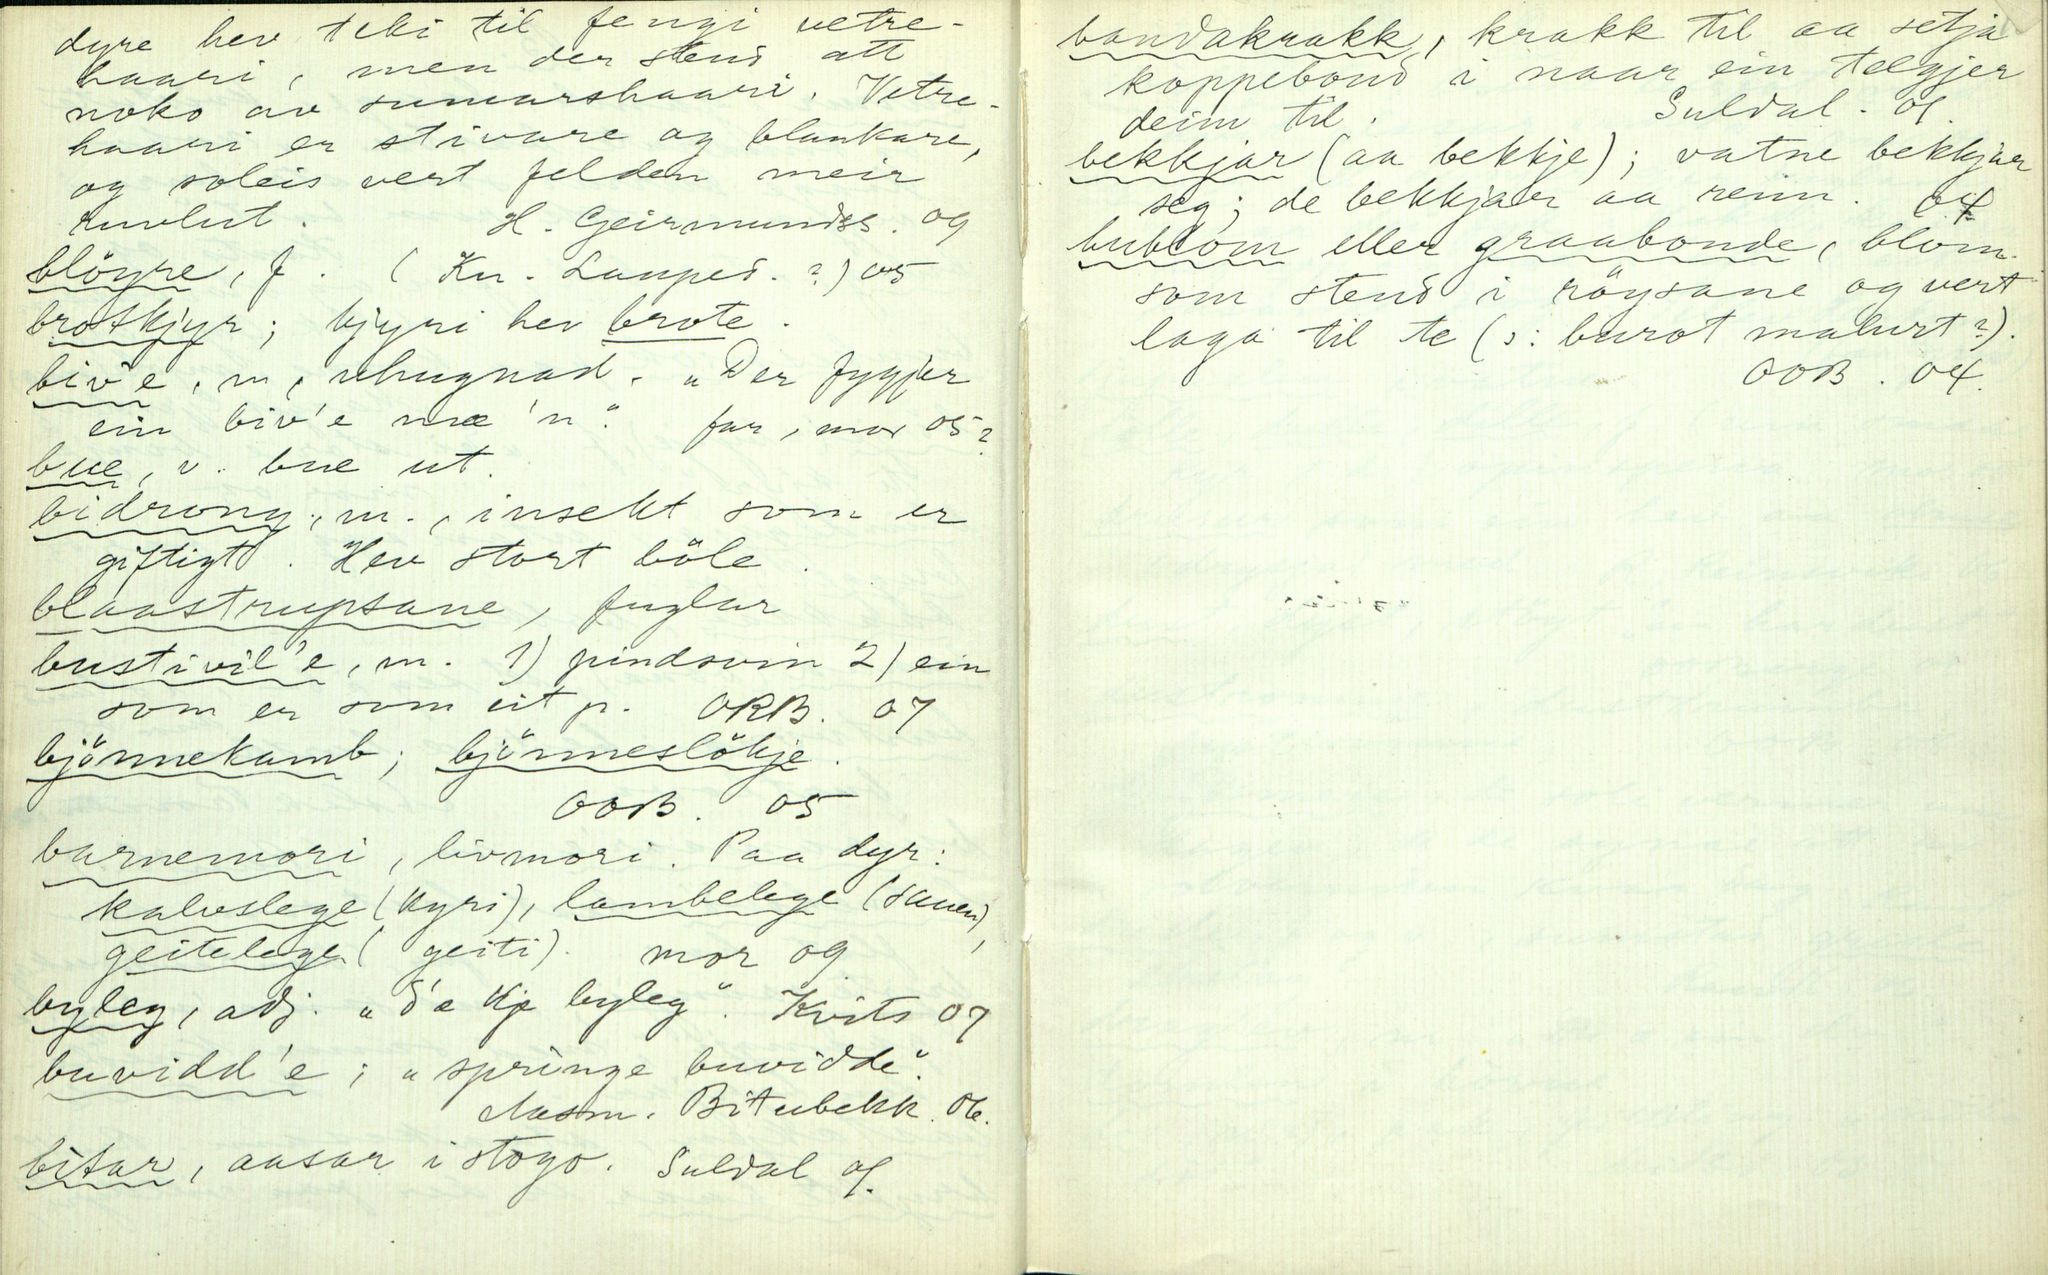 dyre hev teki til fengi vetre-
haari, men der stend att
noko av sumarshaari. Vetre-
haari er stivare og blankare,
og soleis vert felden meir
ruvlut. H. Geirmundss. 09
blöyre, f. (Kn. Lauped. ?) 05
brotkjyr; kjyri hev brote.
biv'e, m, uhugnad. "Der fygjer
ein biv'e mæ 'n". far, mor 05?
bue, v. bue ut.
bidrong, m., insekt som er
giftigt. Hev stort böle.
blaastrupsane, fuglar
bustivil'e, m. 1) pindsvin 2) ein
som er som eit p. ORB. 07
bjönnekamb; bjönneslökje.
OOB. 05
barnemori, livmori. Paa dyr:
kalvslege (kyri), lambelege (sauen),
geitelege (geiti). mor 09
byleg, adj. "d'æ kje byleg". Kvits 07
buvidd'e; "springe buvidde".
Aasm. Bitubekk. 06.
bitar, aasar i stogo. Suldal 01.
bandakrakk, krakk til aa setja
koppebond i naar ein telgjer
deim til. Suldal. 01.
bekkjar (aa bekkje); vatne bekkjar
seg; de bekkjaer aa renn. 04
bublom eller graabonde, blom
som stend i röysane og vert
laga til te (ɔ: burot malurt?).
OOB. 04.